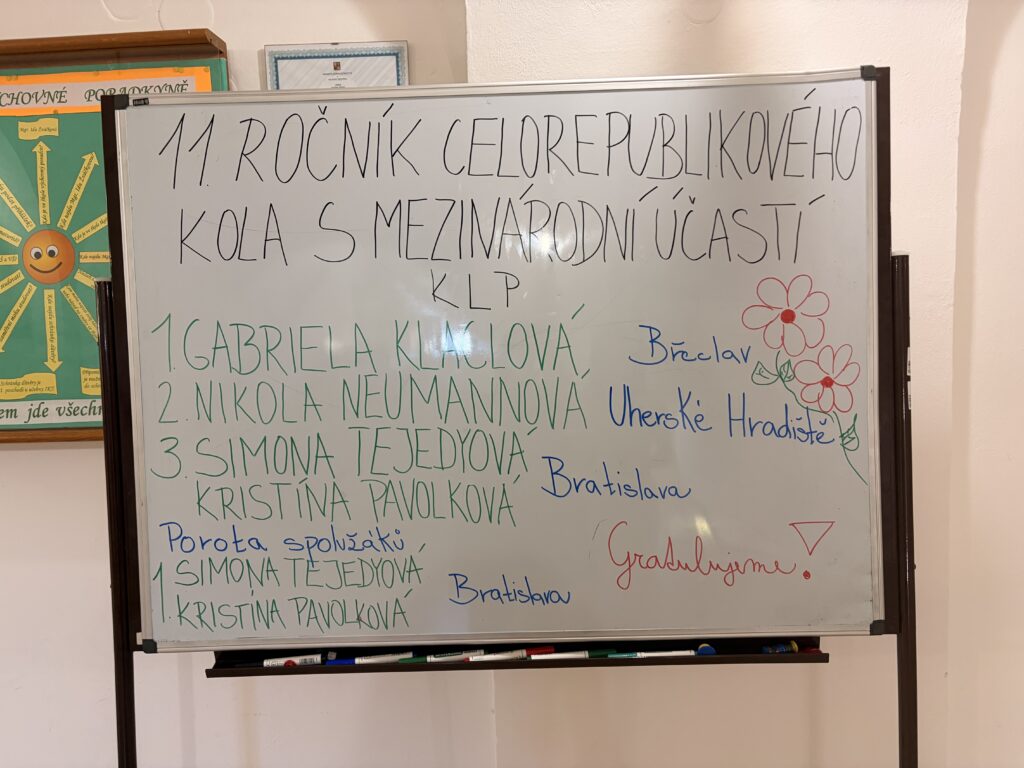 CHOVNÉ PORADKYNĚ
11. ROČNÍK CELOREPUBLIKOVÉHO
KOLA S MEZINÁRODNÍ ÚČASTÍ
KLP
1. GABRIELA KLACLOVÁ Břeclav
2. NIKOLA NEUMANNOVÁ Uherské Hradiště
3. SIMONA TEJEDYOVÁ
KRISTÍNA PAVOLKOVÁ Bratislava
Porota spolužáků
1. SIMONA TEJEDYOVÁ
1. KRISTÍNA PAVOLKOVÁ Bratislava
Gratulujeme!
em jde všechn